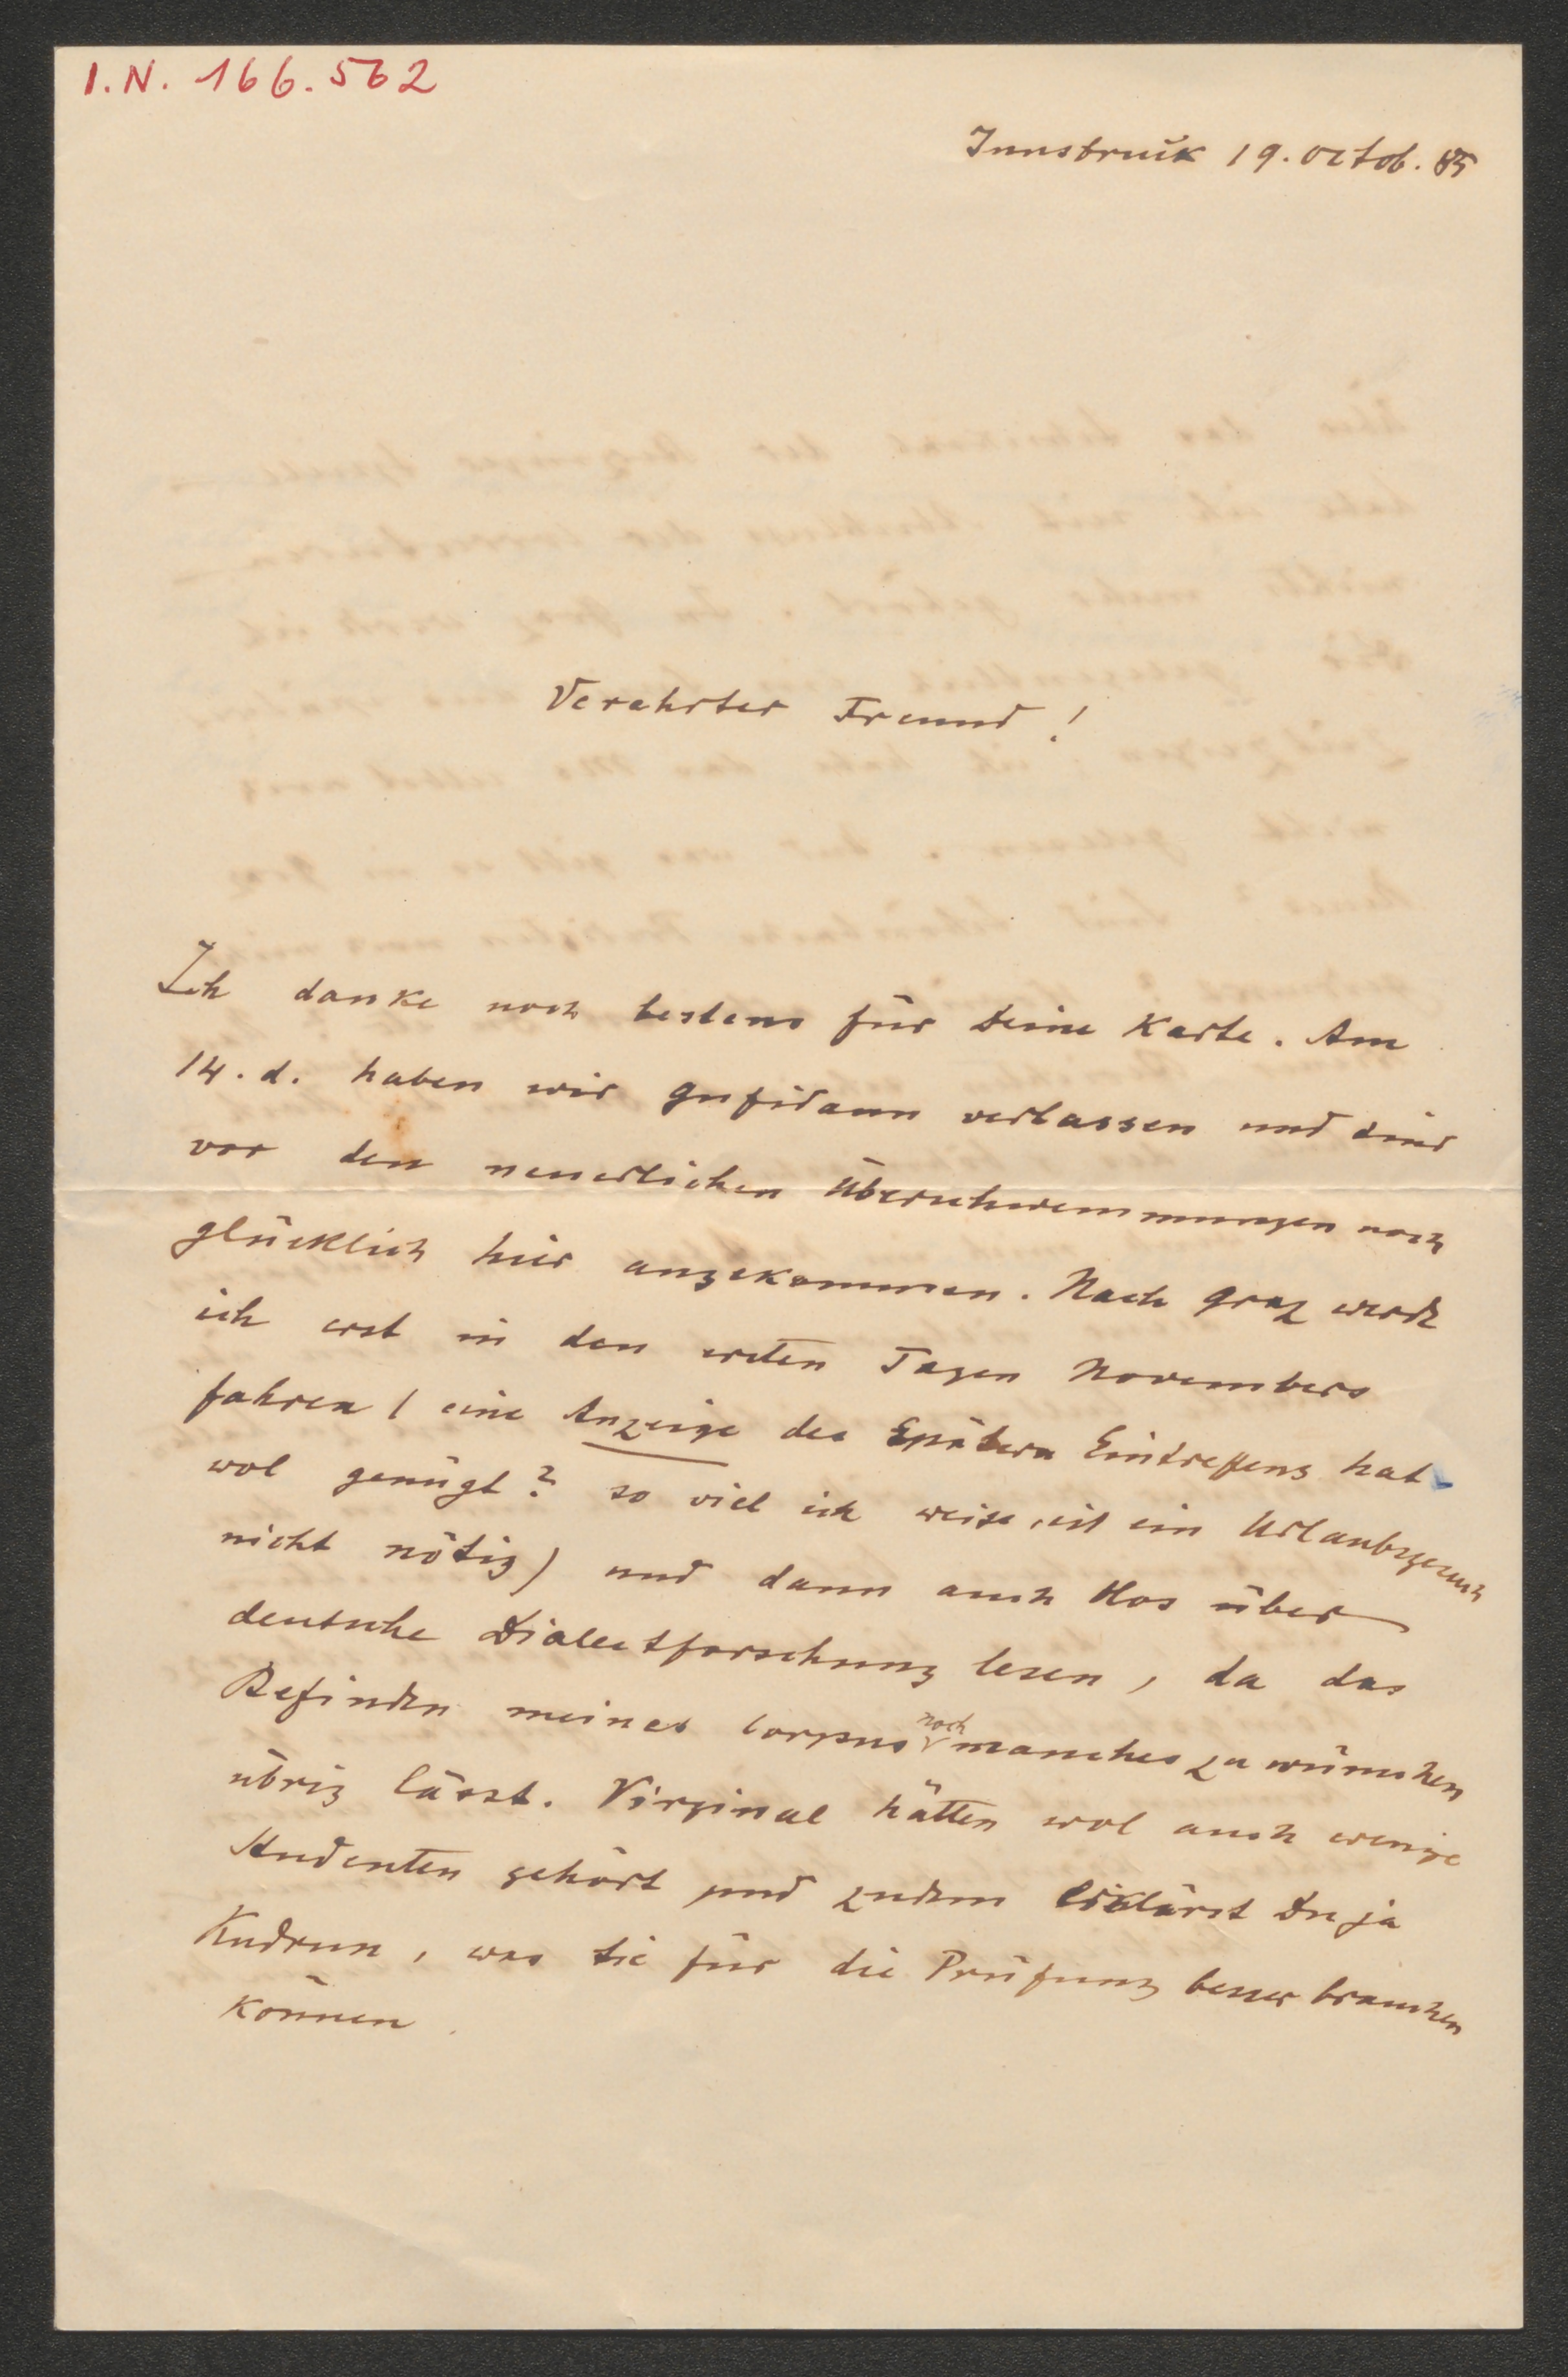 I.N. 166.562
Innsbruck 19. Octob. 85
Verehrter Freund!
Ich danke noch bestens für Deine Karte. Am
14. d. haben wir Gufidaun verlassen und sind
vor den neuerlichen Überschwemmungen noch
glücklich hier angekommen. Nach Graz werde
ich erst in den ersten Tagen Novembers
fahren (eine Anzeige des Spätern Eintreffens hat
wol genügt? so viel ich weiss, ist ein Urlaubsgesuch
nicht nötig) und dann auch blos über
deutsche Dialectforschung lesen, da das
Befinden meines Corpus noch manches zu wünschen
übrig lässt. Virginal hätten wol auch wenige
Studenten gehört und zudem erklärst Du ja
Kudrun, was sie für die Prüfung besser brauchen
können.